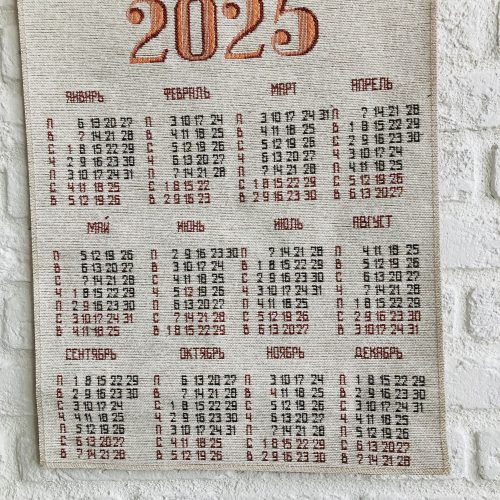 2025
ЯНВАРЬ ФЕВРАЛЬ МАРТ АПРЕЛЬ
П 6 13 20 27 П 3 10 17 24 П 3 10 17 24 31 П 7 14 21 28
В 7 14 21 28 В 4 11 18 25 В 4 11 18 25 В 1 8 15 22 29
С 1 8 15 22 29 С 5 12 19 26 С 5 12 19 26 С 2 9 16 23 30
Ч 2 9 16 23 30 Ч 6 13 20 27 Ч 6 13 20 27 Ч 3 10 17 24
П 3 10 17 24 31 П 7 14 21 28 П 7 14 21 28 П 4 11 18 25
С 4 11 18 25 С 1 8 15 22 С 1 8 15 22 29 С 5 12 19 26
В 5 12 19 26 В 2 9 16 23 В 2 9 16 23 30 В 6 13 20 27
МАЙ ИЮНЬ ИЮЛЬ АВГУСТ
П 5 12 19 26 П 2 9 16 23 30 П 7 14 21 28 П 4 11 18 25
В 6 13 20 27 В 3 10 17 24 В 1 8 15 22 29 В 5 12 19 26
С 7 14 21 28 С 4 11 18 25 С 2 9 16 23 30 С 6 13 20 27
Ч 1 8 15 22 29 Ч 5 12 19 26 Ч 3 10 17 24 31 Ч 7 14 21 28
П 2 9 16 23 30 П 6 13 20 27 П 4 11 18 25 П 1 8 15 22 29
С 3 10 17 24 31 С 7 14 21 28 С 5 12 19 26 С 2 9 16 23 30
В 4 11 18 25 В 1 8 15 22 29 В 6 13 20 27 В 3 10 17 24 31
СЕНТЯБРЬ ОКТЯБРЬ НОЯБРЬ ДЕКАБРЬ
П 1 8 15 22 29 П 6 13 20 27 П 3 10 17 24 П 1 8 15 22 29
В 2 9 16 23 30 В 7 14 21 28 В 4 11 18 25 В 2 9 16 23 30
С 3 10 17 24 С 1 8 15 22 29 С 5 12 19 26 С 3 10 17 24 31
Ч 4 11 18 25 Ч 2 9 16 23 30 Ч 6 13 20 27 Ч 4 11 18 25
П 5 12 19 26 П 3 10 17 24 31 П 7 14 21 28 П 5 12 19 26
С 6 13 20 27 С 4 11 18 25 С 1 8 15 22 29 С 6 13 20 27
В 7 14 21 28 В 5 12 19 26 В 2 9 16 23 30 В 7 14 21 28